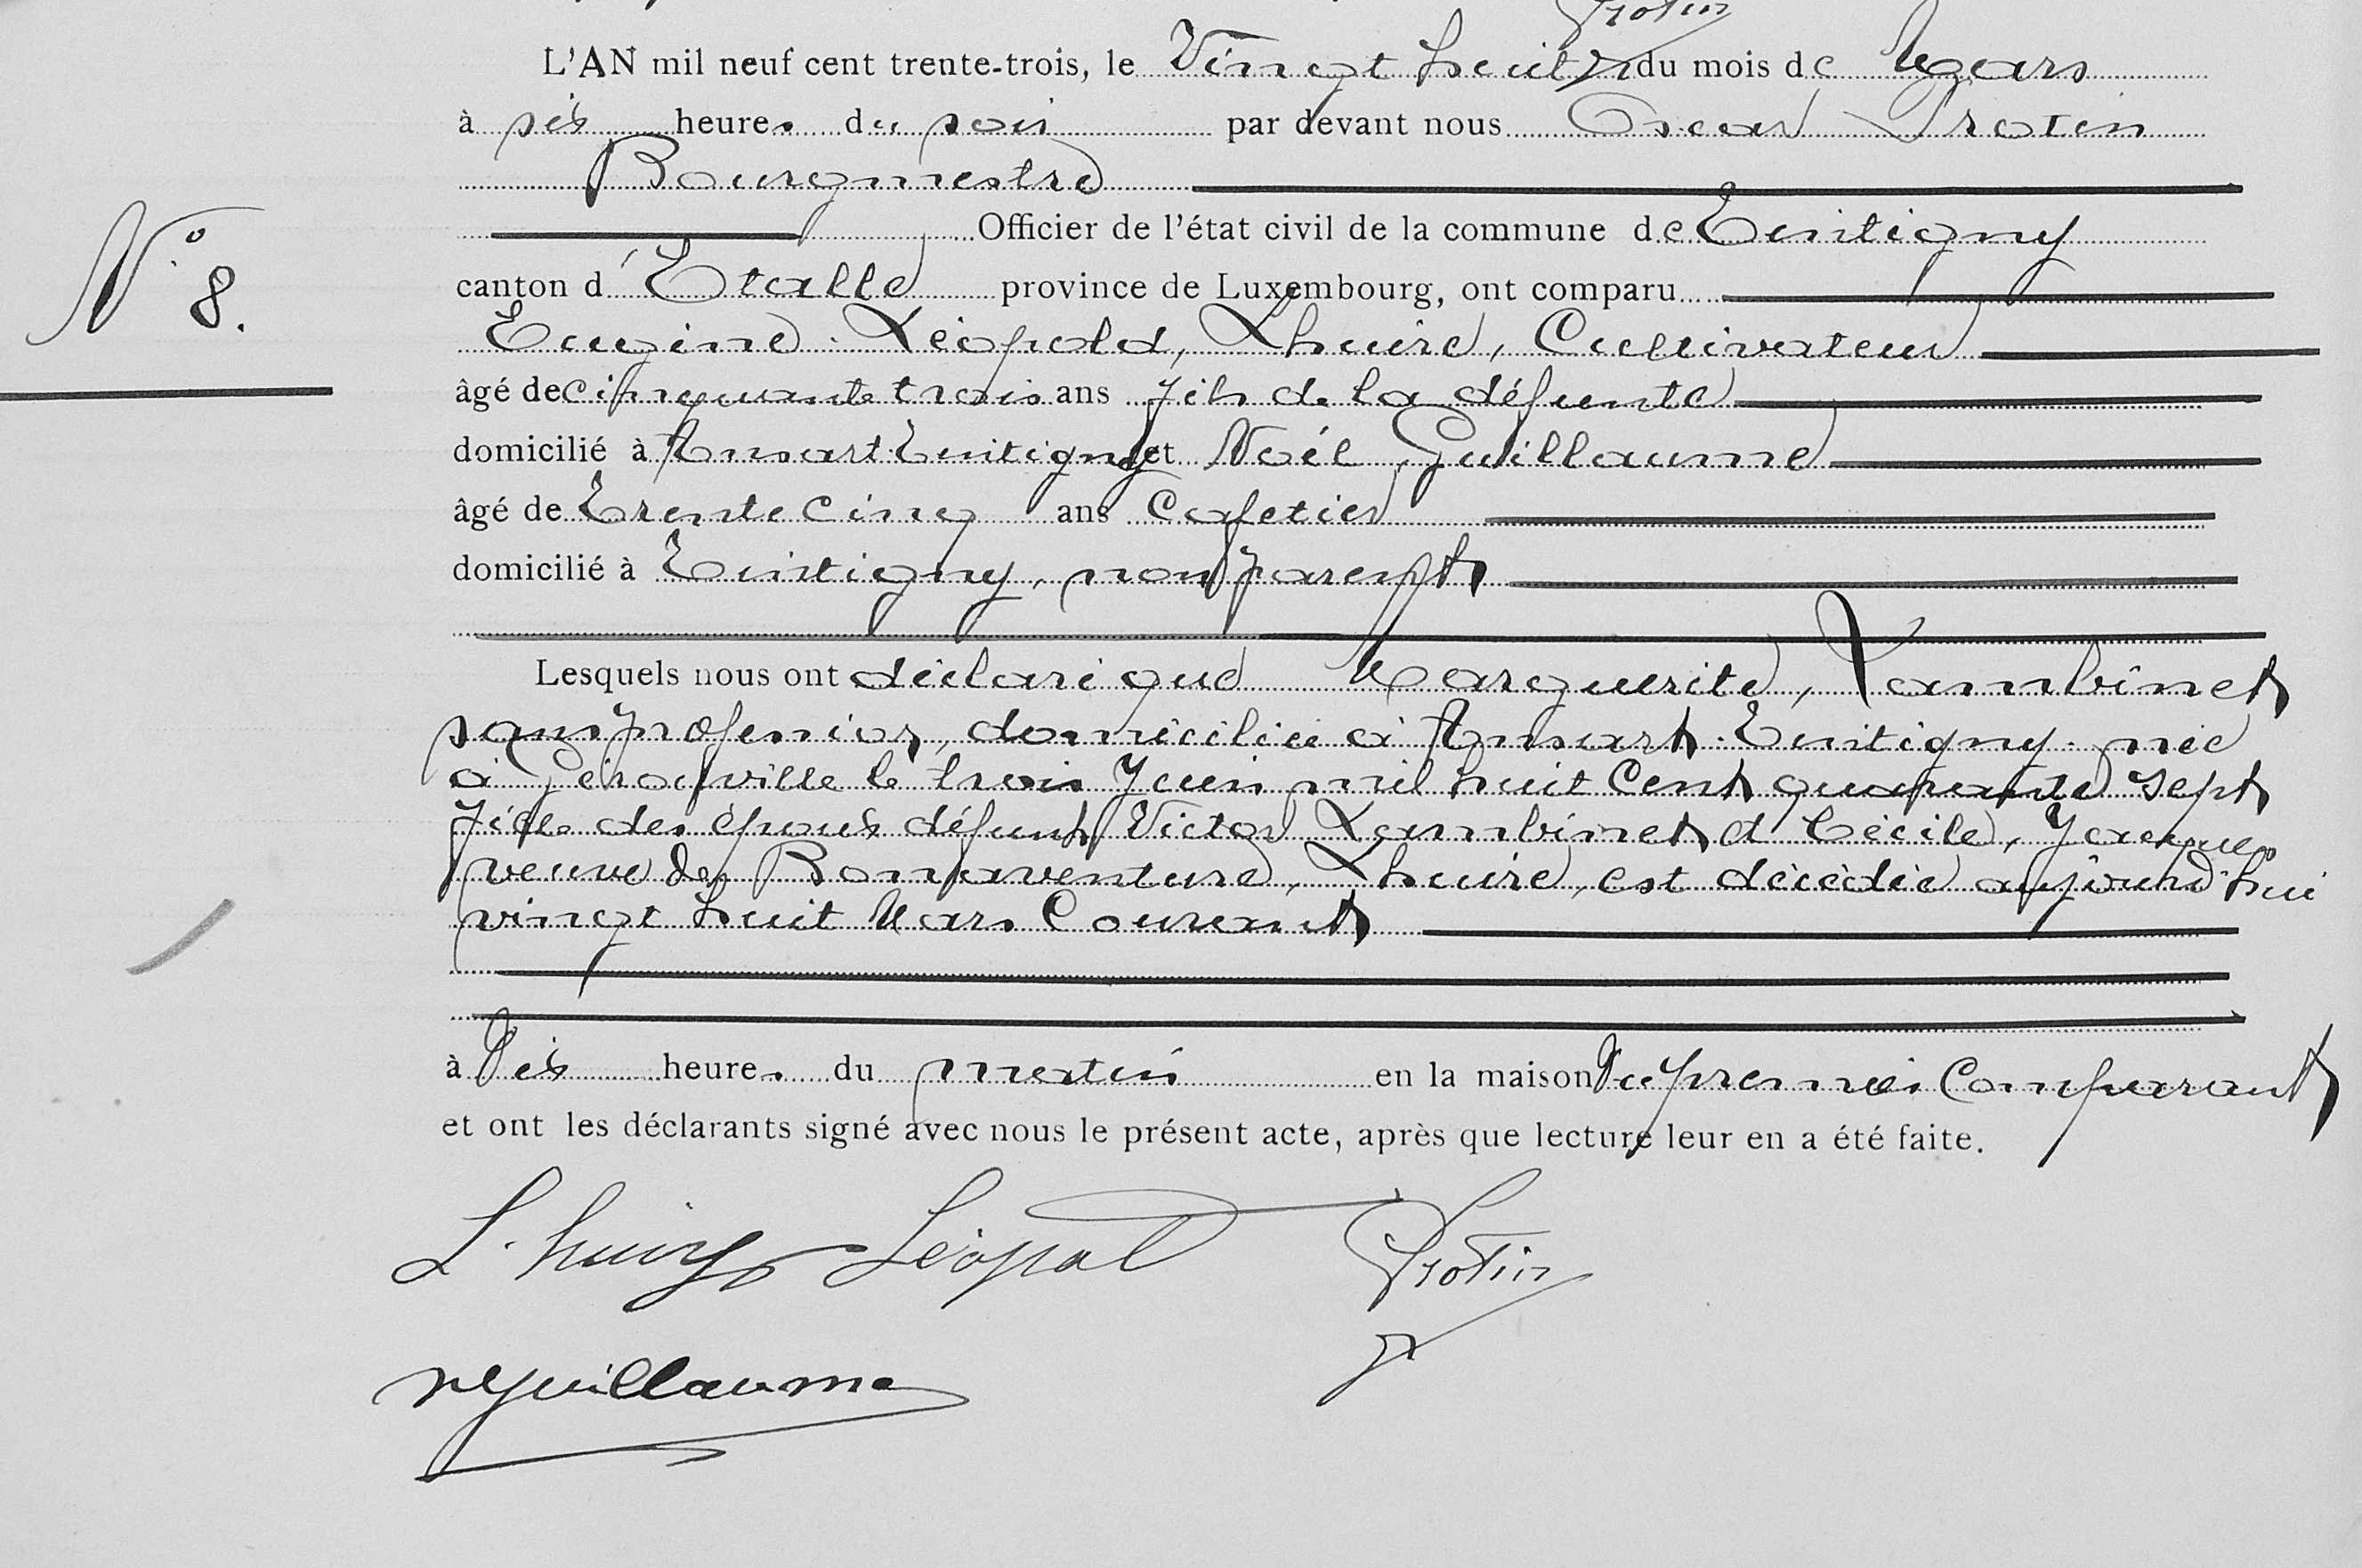 Protin
L'AN mil neuf cent trente-trois, le Vingt huit du mois de Mars
à six heures du soir par devant nous Oscar Protin
Bourgmestre
Officier de l'état civil de la commune de Tintigny
N° 8.
canton d'Etalle province de Luxembourg, ont comparu
Eugène Léopold, Lhuire, Cultivateur
âgé de cinquante trois ans fils de la défunte
domicilié à Ansart-Tintigny et Noël Guillaume
âgé de Trente Cinq ans Cafetier
domicilié à Tintigny, non parent
Lesquels nous ont déclaré que Marguerite, Lambinet
sans profession, domiciliée à Ansart-Tintigny née
à Gérouville le trois Juin mil huit Cent quarante sept
fille des époux défunts Victor Lambinet et Cécile, Jacques
veuve de Bonaventure, Lhuire, est décédée aujourd'hui
vingt huit Mars Courant
à Dix heures du matin en la maison du premier Comparant
et ont les déclarants signé avec nous le présent acte, après que lecture leur en a été faite.
L. huire Léopol Protin
N Guillaume